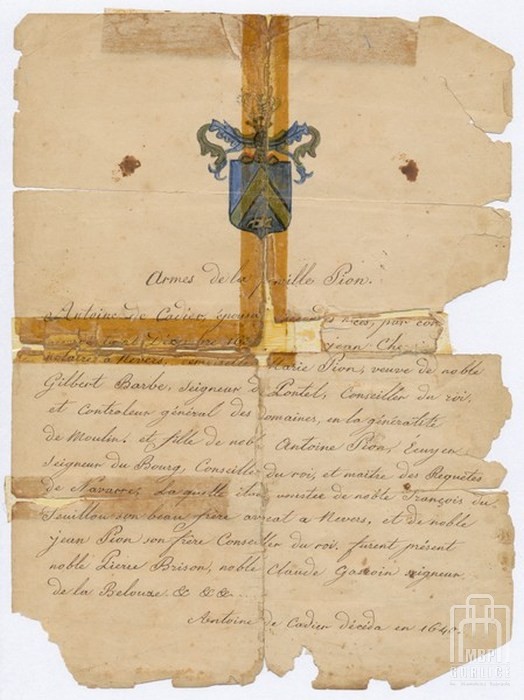 Armes de la famille Pion.
Antoine de Cadier, épousa noces, par con
Jean Che
notaires à Nevers, Marie Pion, veuve de noble
Gilbert Barbe, Seigneur d Pontel, Conseiller du roi,
et Controleur général des domaines, en la généralité
de Moulin. et fille de nobl Antoine Pion, Ecuyer,
Seigneur du Bourg, Conseiller du roi, et maître des Requetes
de Navarre, La quelle était assistée de noble François du
Feuillou son beau frère avocat a Nevers, et de noble
jean Pion son frère Conseiller du roi, furent présent
noble Pierre Brison, noble Claude Gascoin seigneur
de la Belouze & & &
Antoine de Cadier décéda en 1640.